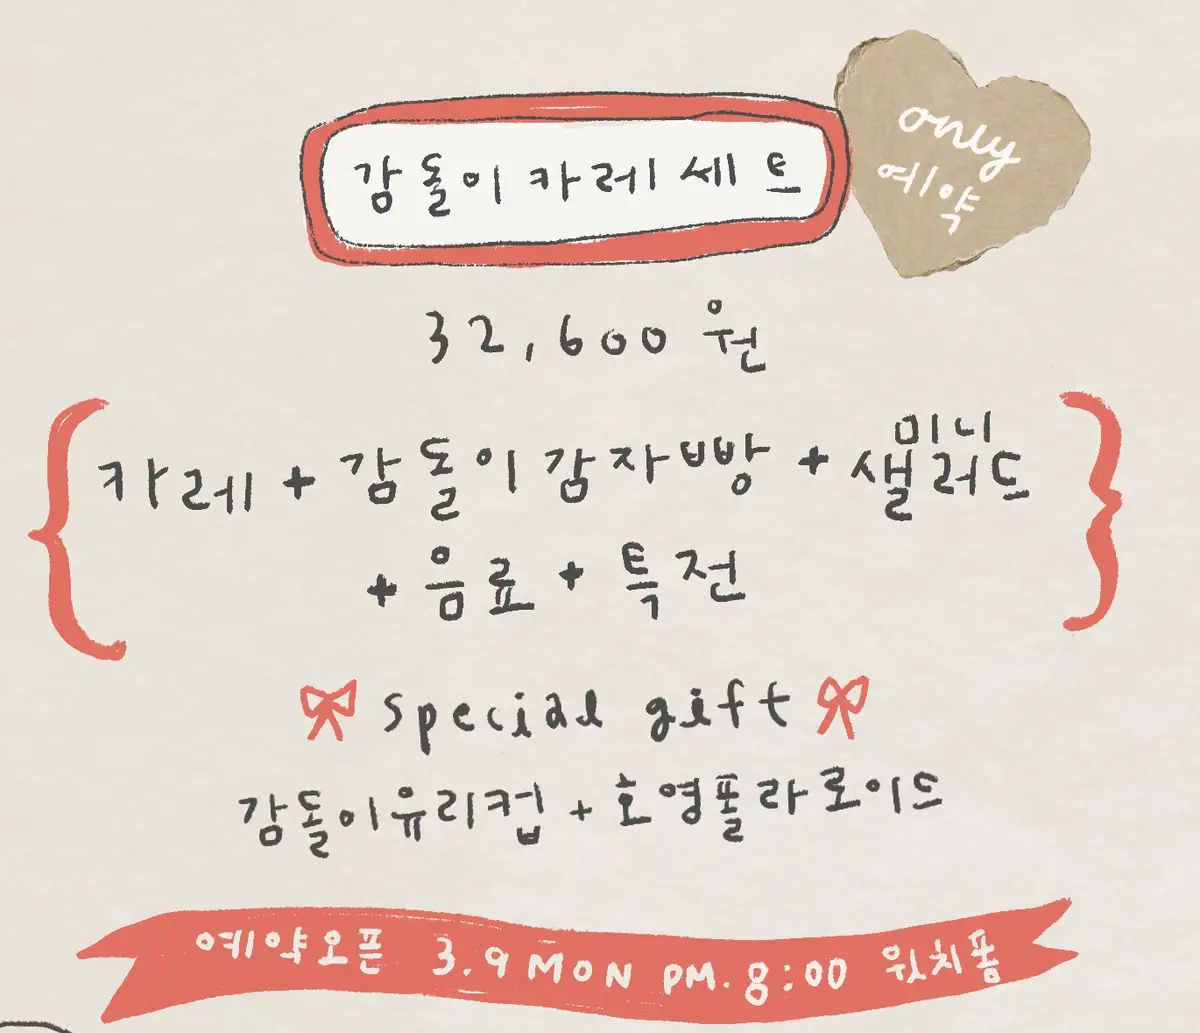 감돌이 카레 세트
only
예약
32,600 원
카레 + 감돌이 감자빵 + 미니 샐러드
+ 음료 + 특전
special gift
감돌이유리컵 + 호영폴라로이드
예약오픈 3.9 MON PM.8:00 윗치폼